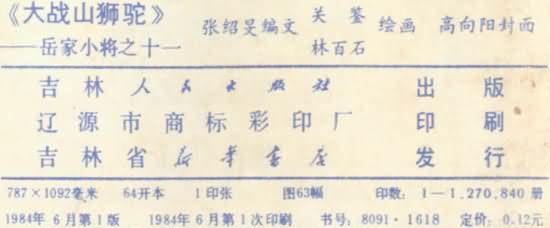 《大战山狮驼》
——岳家小将之十一
张绍旻编文 关 鉴 林百石 绘画 高向阳封面
吉林人民出版社 出版
辽源市商标彩印厂 印刷
吉林省新华书店 发行
787×1092毫米 64开本 1印张 图63幅 印数：1—1,270,840册
1984年6月第1版 1984年6月第1次印刷 书号：8091·1618 定价：0.12元